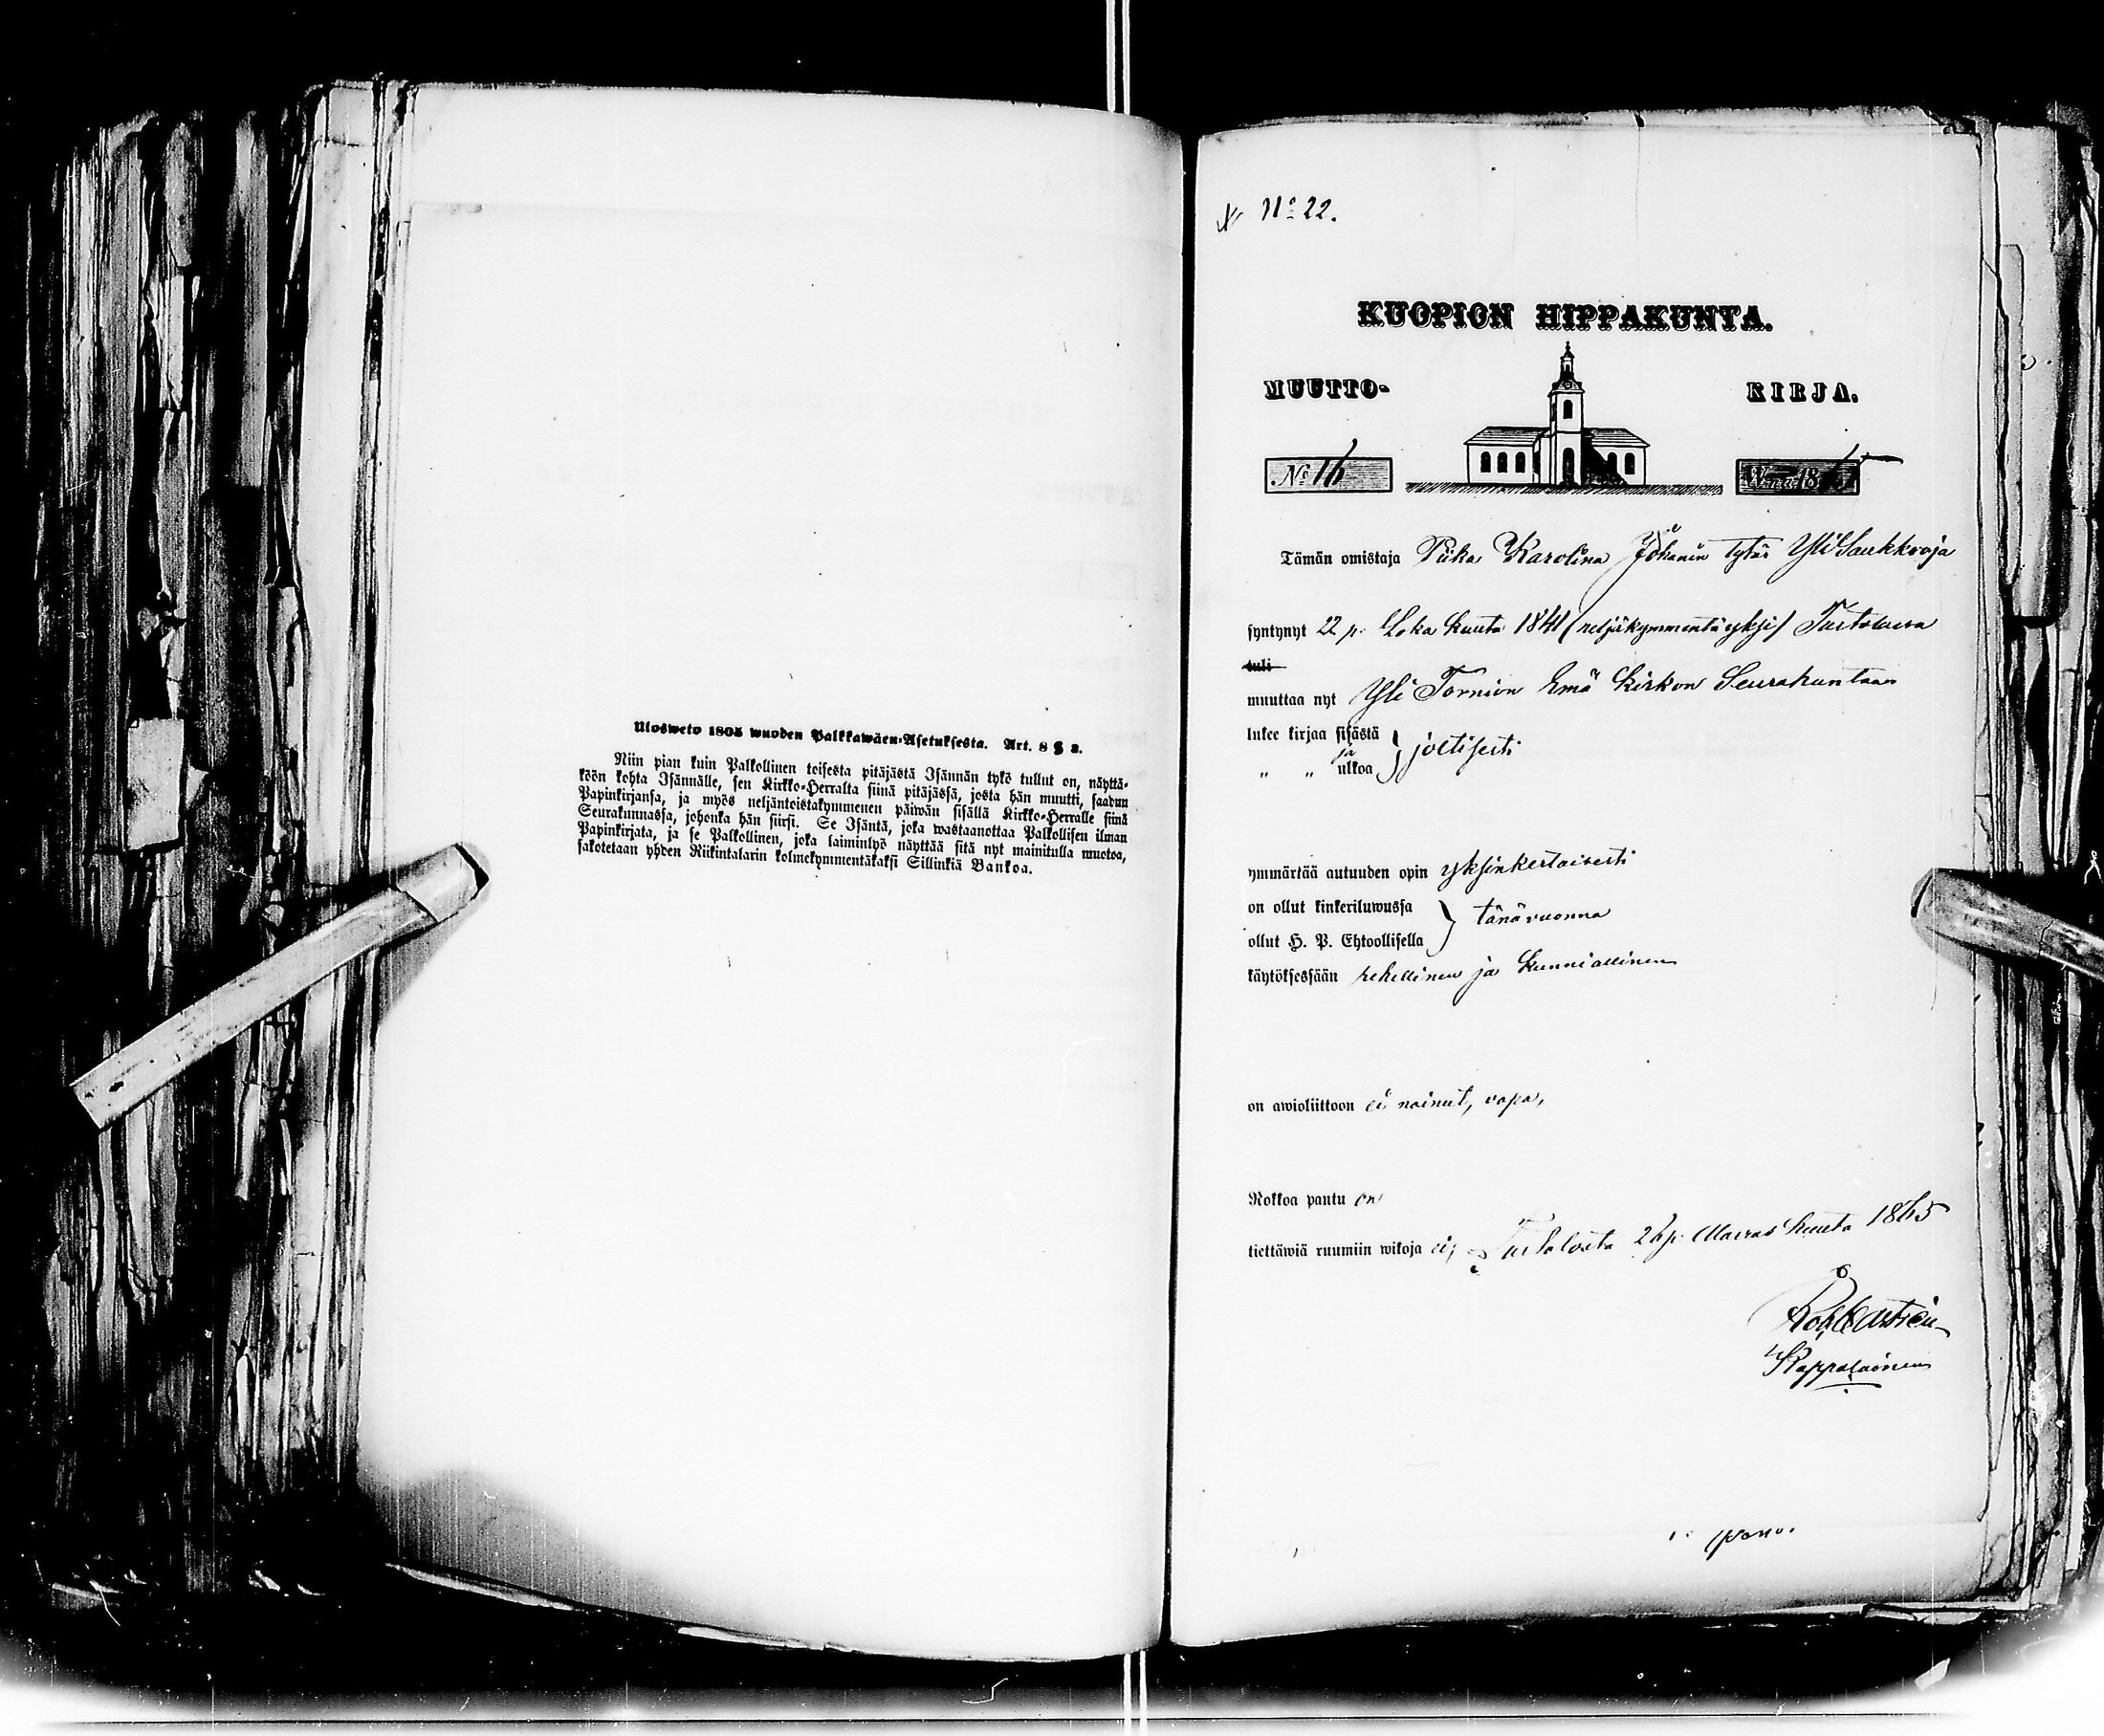 Ulosweto 1805 wuoden Palkkawäen-Asetuksesta. Art. 8 § 2.
Niin pian kuin Palkollinen toisesta pitäjästä Isännän tykö tullut on, näyttä-
köön kohta Isännälle, sen Kirkko-Herralta siinä pitäjässä, josta hän muutti, saadun
Papinkirjansa, ja myös neljäntoistakymmenen päiwän sisällä Kirkko-Herralle siinä
Seurakunnassa, johonka hän siirsi. Se Isäntä, joka wastaanottaa Palkollisen ilman
Papinkirjata, ja se Palkollinen, joka laiminlyö näyttää sitä nyt mainitulla muotoa,
sakotetaan yhden Riikintalarin kolmekymmentäkaksi Sillinkiä Bankoa.
No 22.
KUOPION HIPPAKUNTA.
MUUTTO- KIRJA.
No 16 W:na 1865
Tämän omistaja Piika Karolina Johanin tytär Yli Saukkoaja
syntynyt 22 p. Loka kuuta 1841 (neljäkymmentä yksi) Turtolassa
tuli
muuttaa nyt Yli Tornion Emä Kirkon Seurakuntaan
lukee kirjaa sisästä
ja } joltisesti
„ „ ulkoa
ymmärtää autuuden opin yksinkertaisesti
on ollut kinkeriluwussa } tänävuonna
ollut H. P. Ehtoollisella
käytöksessään rehellinen ja kunniallinen
on awioliittoon ei nainut, vapa,
Rokkoa pantu on
tiettäwiä ruumiin wikoja ei; Turtolasta 26 p. Marras kuuta 1865
Kappalainen